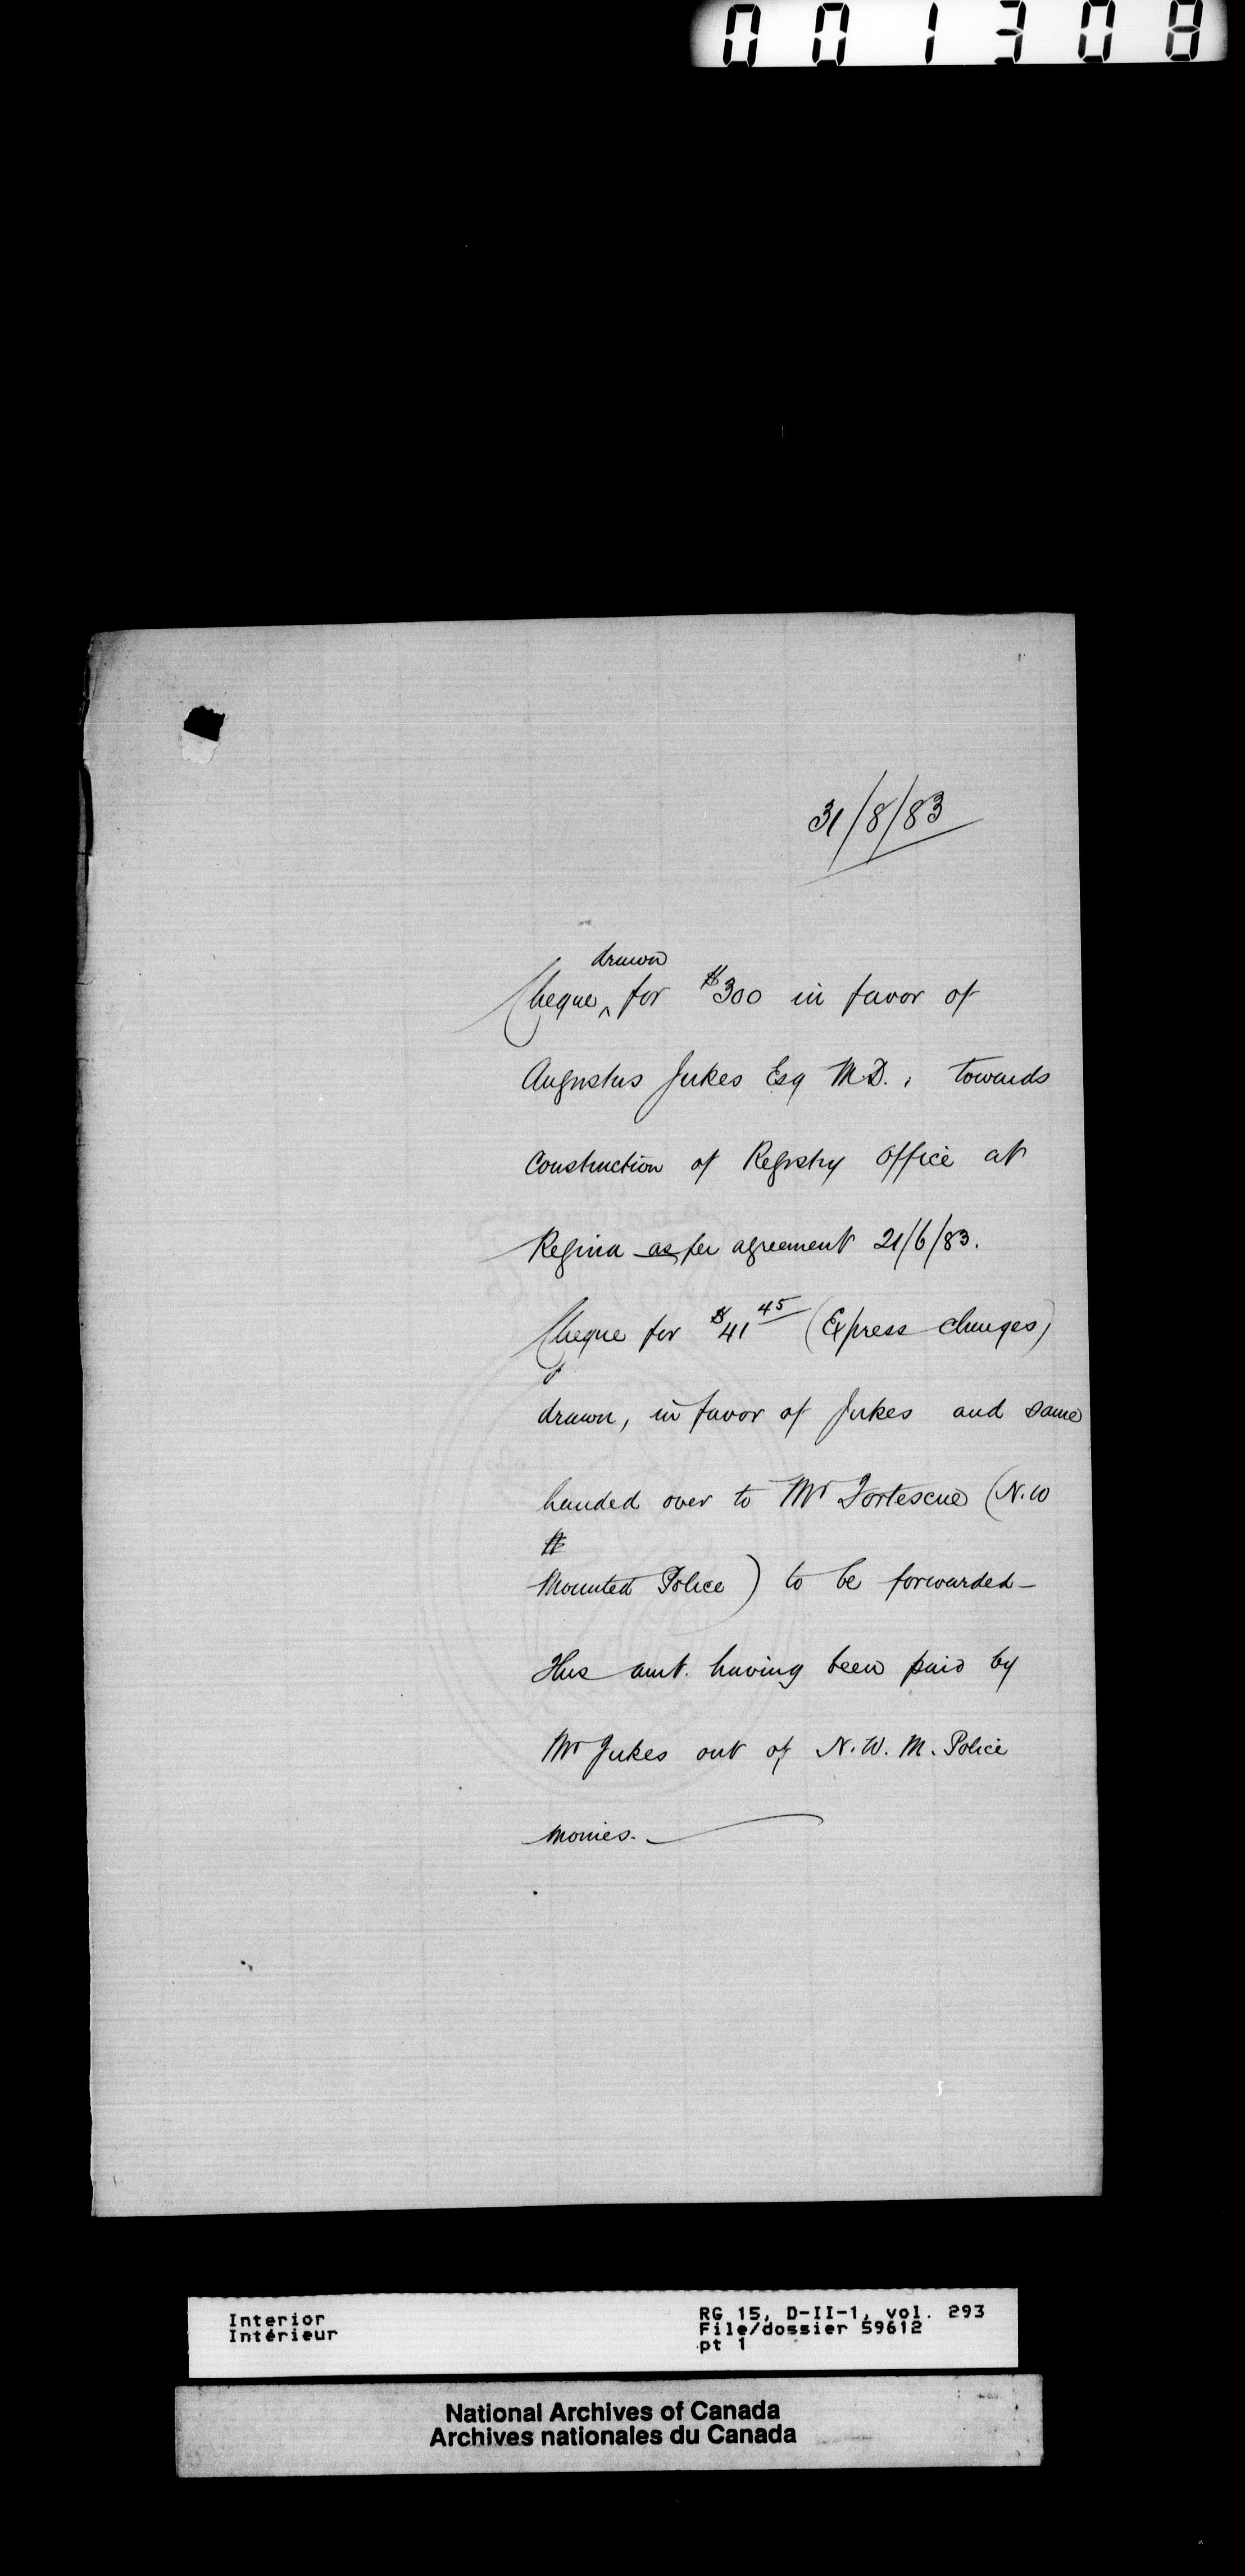 001308
31/8/83
drawn
Cheque ^ for $300 in favor of
Augustus Jukes Esq M.D., towards
Construction of Registry Office at
Regina as per agreement 21/6/83.
Cheque for $41 45 (Express charges)
drawn, in favor of Jukes and same
handed over to Mr Fortescue (N.W
Mounted Police) to be forwarded -
this amt. having been paid by
Mr Jukes out of N.W.M. Police
monies.
Interior
Intérieur
RG 15, D-II-1, vol. 293
File/dossier 59612
pt 1
National Archives of Canada
Archives nationales du Canada